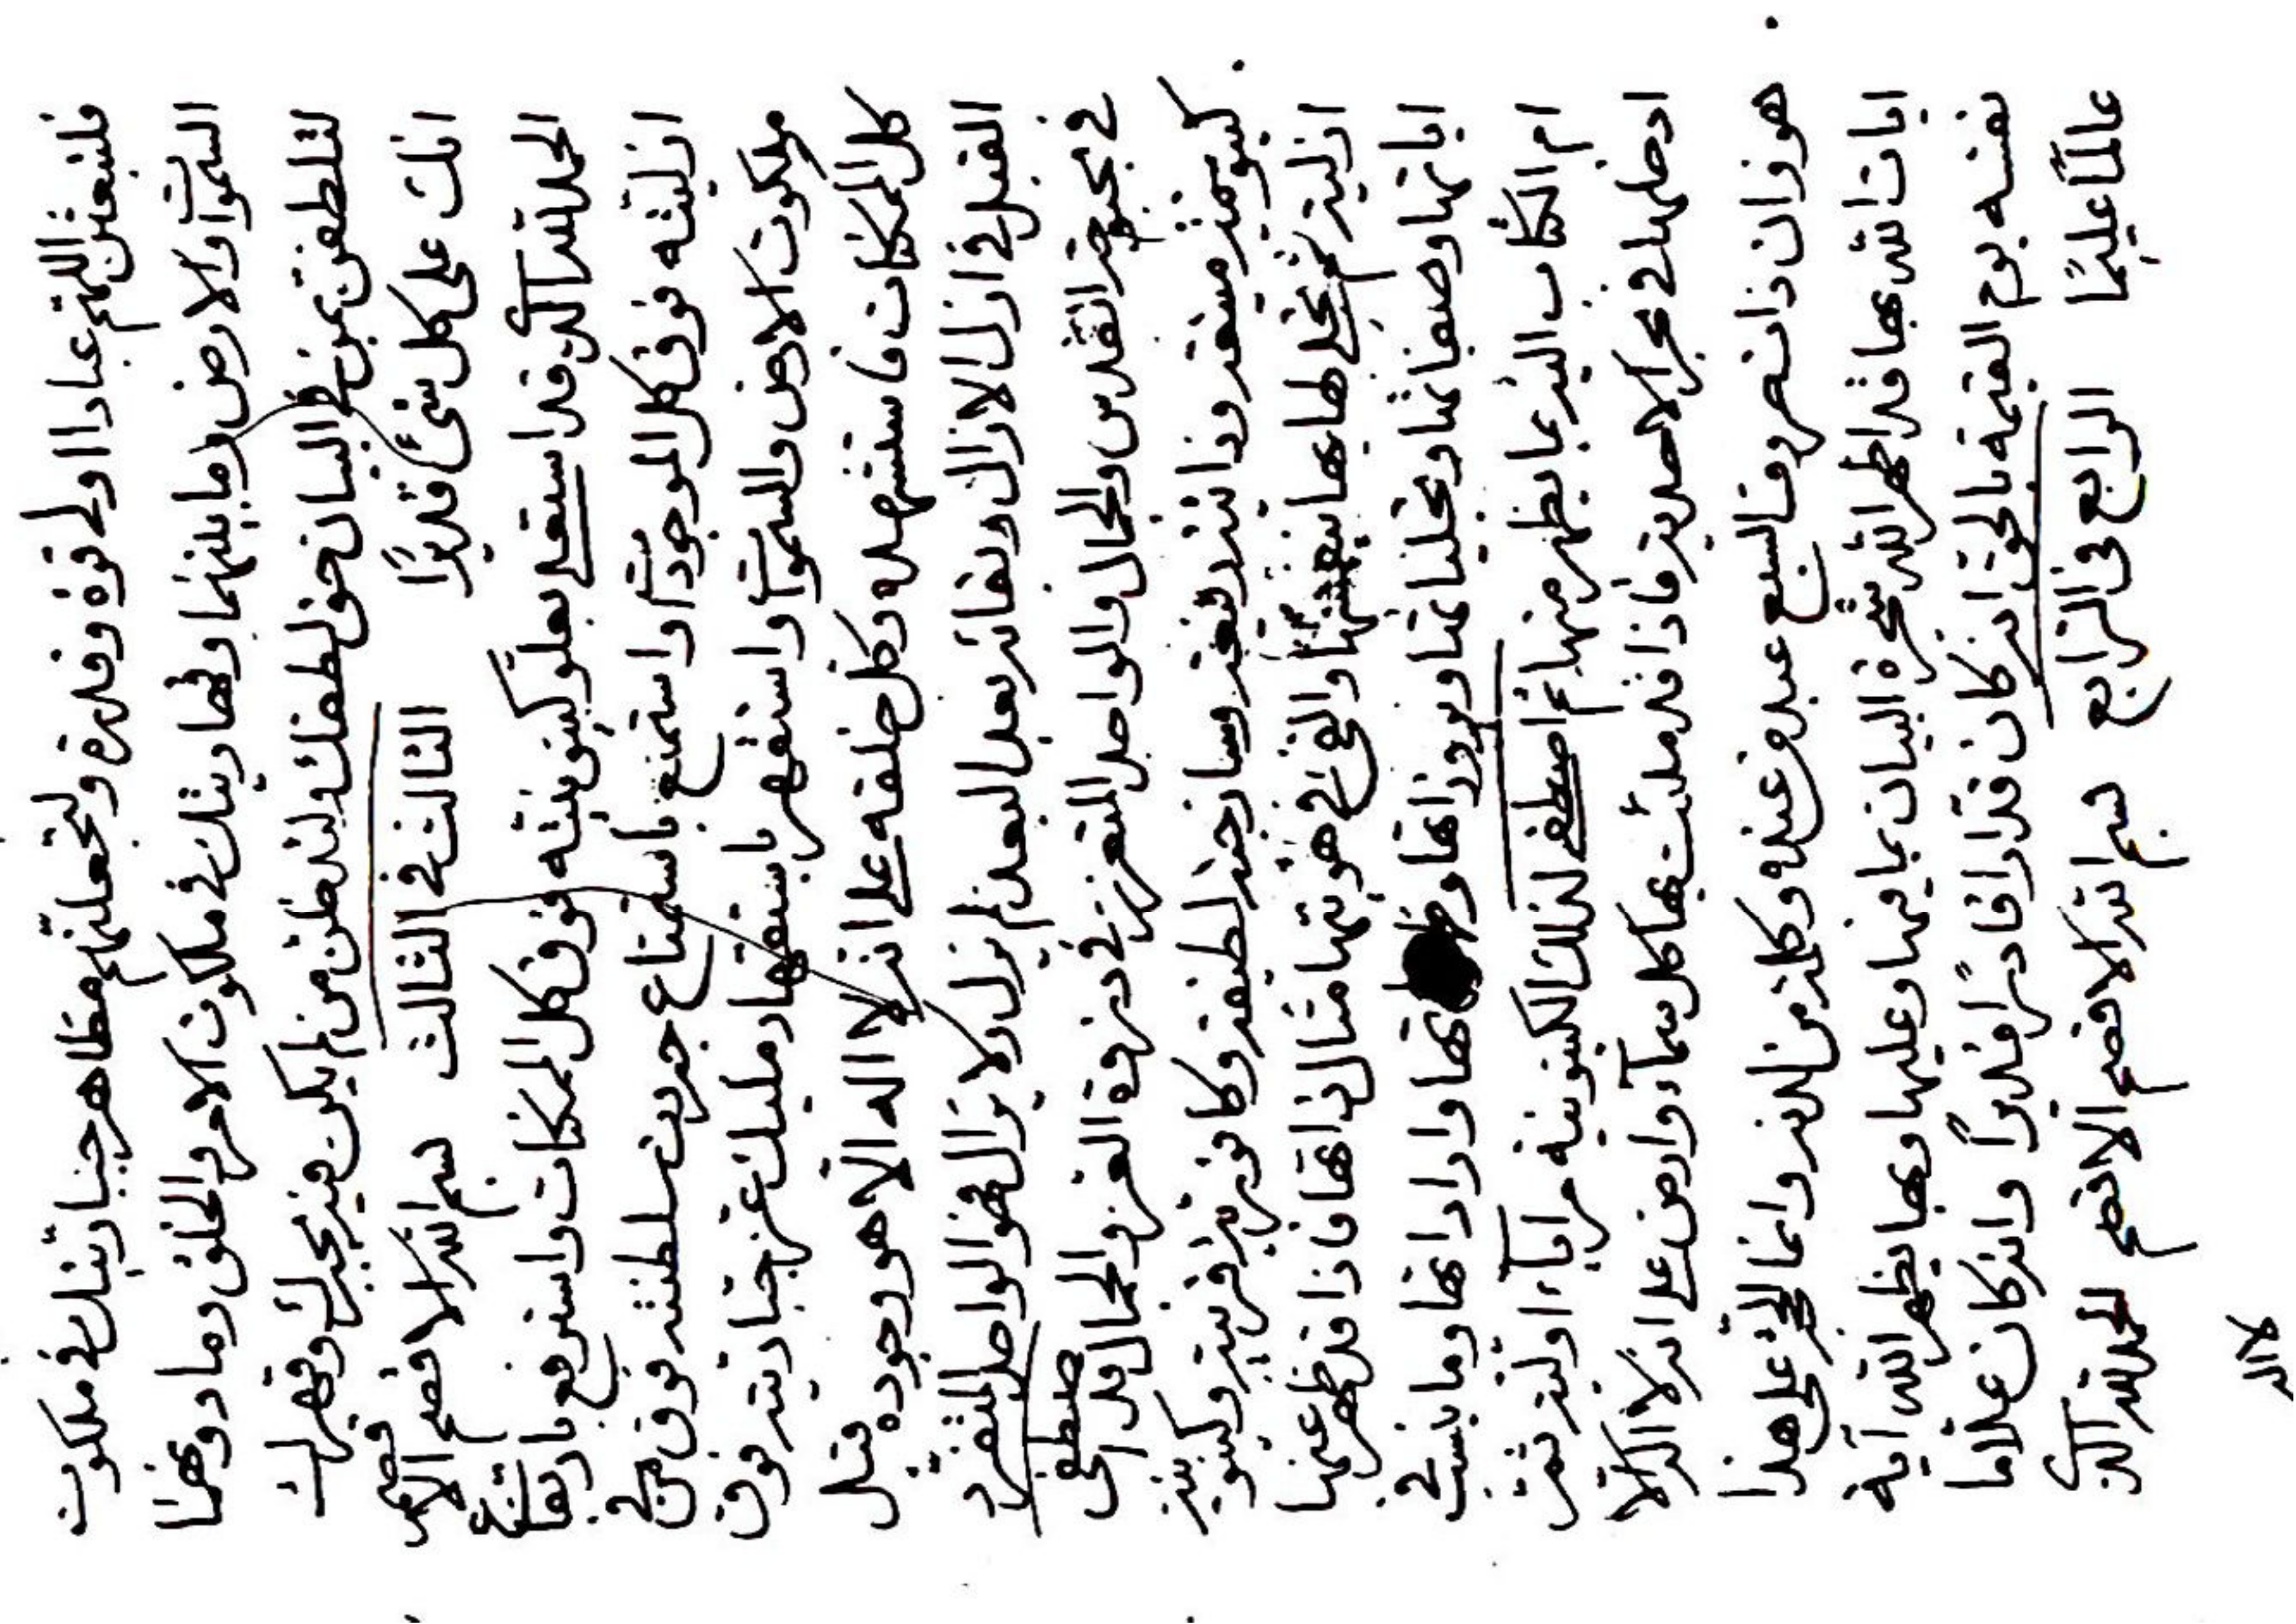 فلتبعثن اللهم عبادا اولى قوة وقدرة ولتجعلنهم مظاهر جباريتك فى ملكوت
السموات والارض وما بينهما وقهاريتك فى ملكوت الامر والخلق وما دونهما
لتلطفن بمن فى البيان خفى لطفك ولتدخلن من لم يكن فيه بجبرك وقهرك
انك على كل شئ قديرا الثالث فى الثالث بسم الله الاقصم الاقصم
الحمد لله الذى قد استعلى بعلو كينونيته فوق كل الممكنات واسترفع بارتفاع
ازليته فوق كل الموجودات واستمنع باستمناع جبروت سلطنته فوق من فى
ملكوت الارض والسموات واستقهر باستقهار مليك عز جباريته فوق
كل الممكنات فاستشهده وكل خلقه على انه لا اله الا هو وجوده قبل
القبل فى ازل الازال وبقائه بعد البعد لم يزل ولا يزال لهو الواحد المتفرد
فى بحبوحة القدس والجمال والواحد المتعزز فى ذروة العز والجلال قد اصطفى
كينونية متفردة وذاتية وساذجية لطيفة وكافورية وكينونية
ازلية ثم تجلى لها بها بنفسها والقى فى هويتها مثال ذاتها فاذا قد ظهر عنها
اياتها وصفاتها وتجلياتها وبروزاتها واراداتها وما ينسب فى
ام الكتاب اليه بما يظهر منها ثم اصطفى لذلك الكينونية مرايا اولية ثم
ادخلها فى بحر الاحدية فاذا قد ملئت بها كل سماء وارض على انه لا اله الا
هو وان ذات حروف السبع عبده من عنده وكلمة من لدنه وانما الحجة على هذا
ايات الله بها قد اظهر الله شجرة البيان بما فيها وعليها وبها يظهر الله آية
نفسه يوم القيمة بالحق انه كان قدارا قادرا قديرا وانه كان علاما
عالما عليما الرابع فى الرابع بسم الله الاقصم الاقصم الحمد لله الذى
لا اله